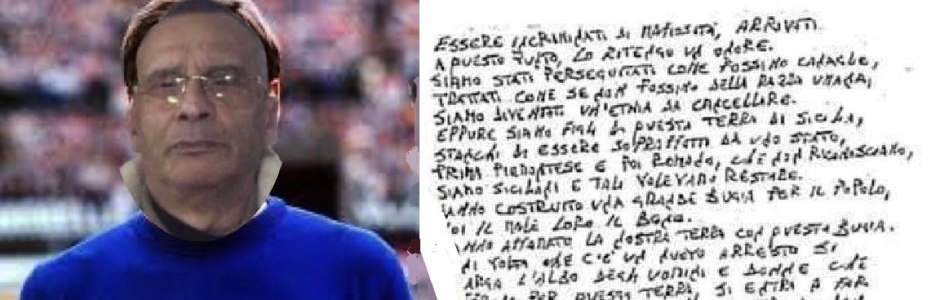 ESSERE INCRIMINATI DI MAFIOSITÀ, ARRIVATI
A QUESTO PUNTO, LO RITENGO UN ONORE.
SIAMO STATI PERSEGUITATI COME FOSSIMO CANAGLIE,
TRATTATI COME SE NON FOSSIMO DELLA RAZZA UMANA,
SIAMO DIVENTATI UN'ETNIA DA CANCELLARE.
EPPURE SIAMO FIGLI DI QUESTA TERRA DI SICILIA,
STANCHI DI ESSERE SOPRAFFATTI DA UNO STATO,
PRIMA PIEMONTESE E POI ROMANO, CHE NON RICONOSCIAMO,
SIAMO SICILIANI E TALI VOLEVAMO RESTARE.
COSTRUITO UNA GRANDE BUGIA PER IL POPOLO,
IL MALE LORO IL BENE.
LA NOSTRA TERRA CON QUESTA BUGIA.
VOLTA CHE C'E' UN NUOVO ARRESTO SI
L'ALBO DEGLI UOMINI E DONNE CHE
PER QUESTA TERRA, SI ENTRA A FAR